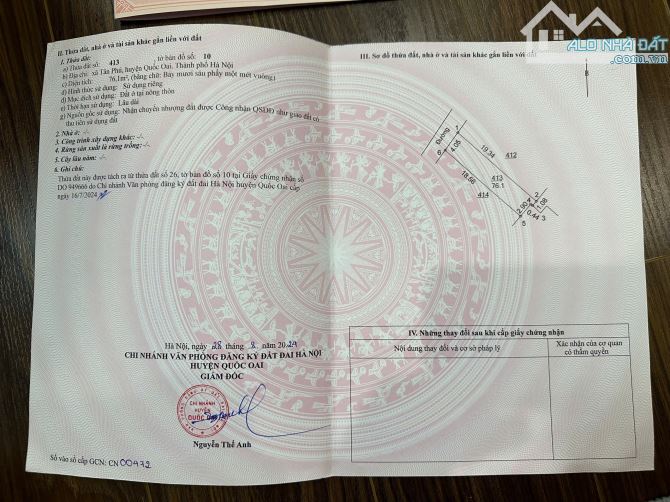 II. Thửa đất, nhà ở và tài sản khác gắn liền với đất
1. Thửa đất:
a) Thửa đất số: 413 , tờ bản đồ số: 10
b) Địa chỉ: xã Tân Phú, huyện Quốc Oai, Thành phố Hà Nội
c) Diện tích: 76,1m², (bằng chữ: Bảy mươi sáu phẩy một mét vuông)
d) Hình thức sử dụng: Sử dụng riêng
đ) Mục đích sử dụng: Đất ở tại nông thôn
e) Thời hạn sử dụng: Lâu dài
g) Nguồn gốc sử dụng: Nhận chuyển nhượng đất được Công nhận QSDĐ như giao đất có
thu tiền sử dụng đất
2. Nhà ở: -/-
3. Công trình xây dựng khác: -/-
4. Rừng sản xuất là rừng trồng: -/-
5. Cây lâu năm: -/-
6. Ghi chú:
Thửa đất này được tách ra từ thửa đất số 26, tờ bản đồ số 10 tại Giấy chứng nhận số
DO 949666 do Chi nhánh Văn phòng đăng ký đất đai Hà Nội huyện Quốc Oai cấp
ngày 16/7/2024
Hà Nội, ngày 28 tháng 8 năm 2024
CHI NHÁNH VĂN PHÒNG ĐĂNG KÝ ĐẤT ĐAI HÀ NỘI
HUYỆN QUỐC OAI
GIÁM ĐỐC
CHI NHÁNH
HUYỆN
QUỐC OAI
Nguyễn Thế Anh
Số vào sổ cấp GCN: CN 00972
III. Sơ đồ thửa đất, nhà ở và tài sản khác gắn liền với đất
B
Đường
1
4.05
6
19.34
412
18.66
413
76.1
414
2
2.90
1.08
0.44
3
5
IV. Những thay đổi sau khi cấp giấy chứng nhận
Nội dung thay đổi và cơ sở pháp lý
Xác nhận của cơ quan
có thẩm quyền
ALO NHÀ ĐẤT